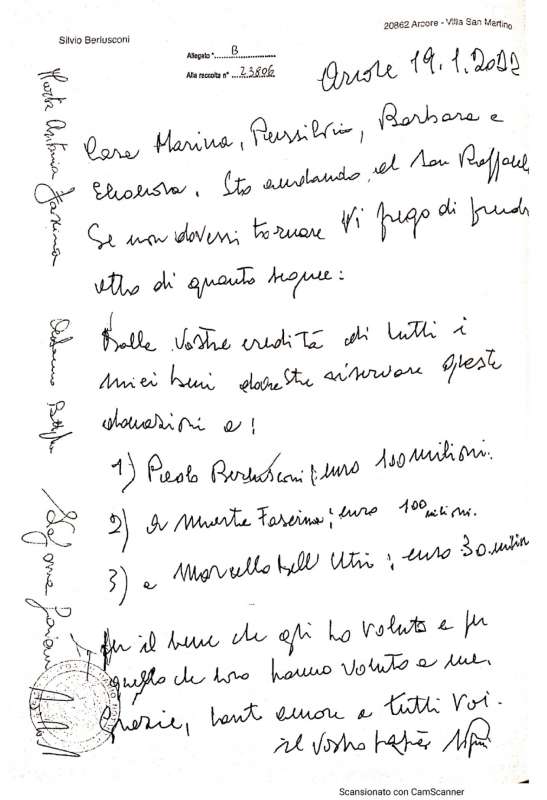 Silvio Berlusconi
20862 Arcore - Villa San Martino
Allegato "B
Alla raccolta n° 23806
Arcore 19.1.2022
Cara Marina, Piersilvio, Barbara e
Eleonora, Sto andando al San Raffaele
Se non dovessi tornare Vi prego di prendere
atto di quanto segue:
Dalle vostre eredità di tutti i
miei beni dovreste riservare queste
donazioni a:
1) Paolo Berlusconi: euro 100 milioni.
2) a Marta Fascina; euro 100 milioni.
3) a Marcello Dell'Utri; euro 30 milioni
per il bene che gli ho voluto e per
quello che loro hanno voluto a me.
Grazie, tanto amore a tutti voi.
il vostro papà
Marta Antonia Fascina
Scansionato con CamScanner